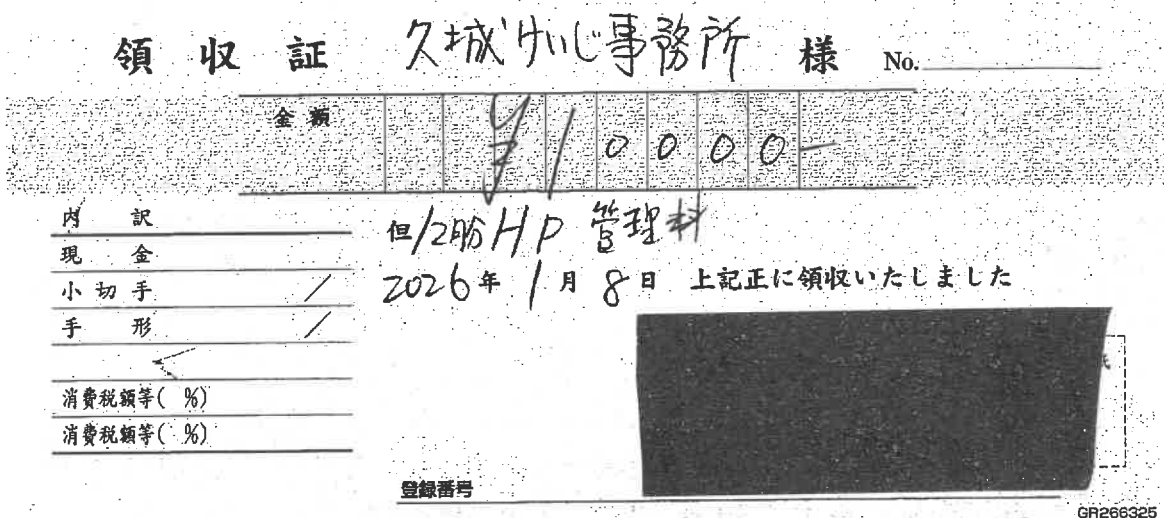 領収証 久城けいじ事務所 様 No.
金額 ¥10000-
内訳
現金
小切手 /
手形 /
消費税額等( %)
消費税額等( %)
但12月分HP管理料
2026年1月8日 上記正に領収いたしました
登録番号
GR266325